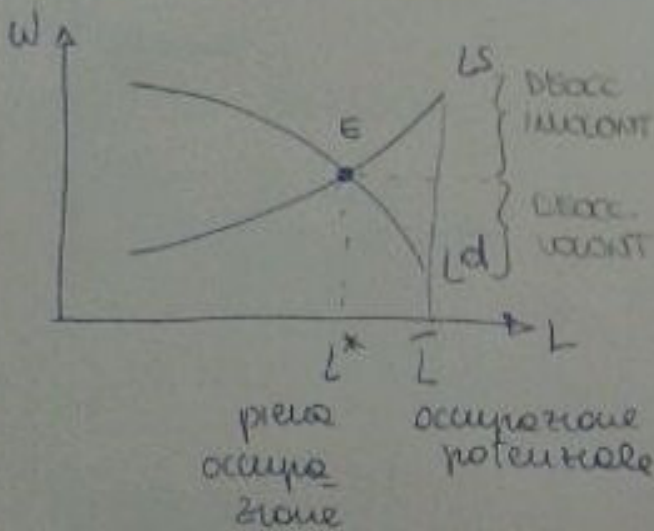 W
LS
E
DISOCC
INVOLONT
DISOCC.
VOLONT
Ld
L
L* L̄
piena occupazione
occupa_ potenziale
zione